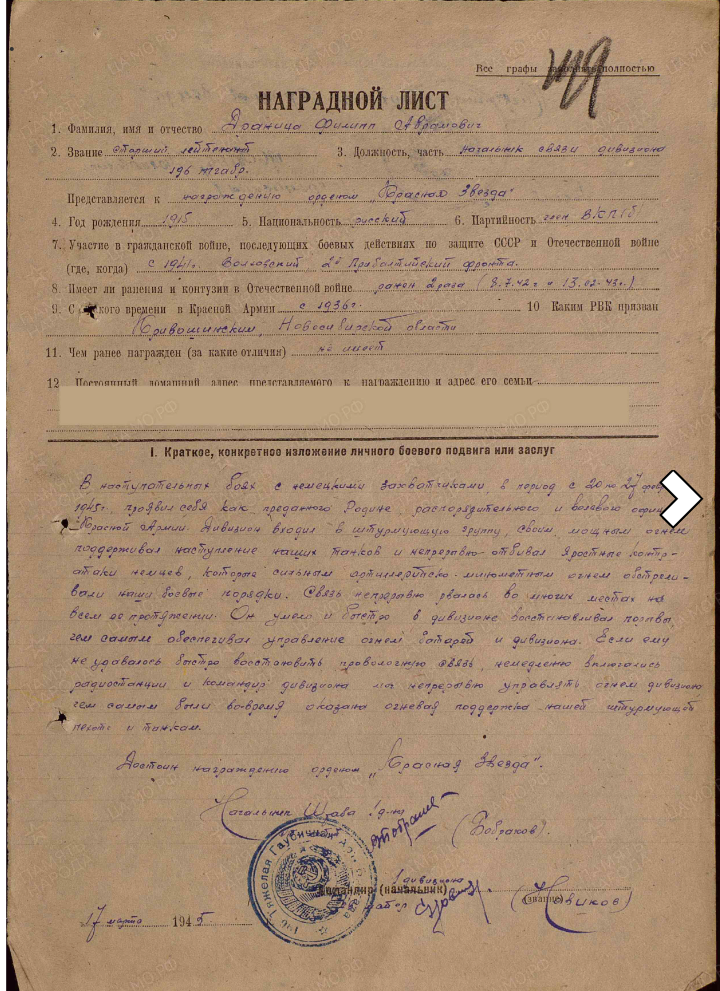 Все графы заполнять полностью
НАГРАДНОЙ ЛИСТ
1. Фамилия, имя и отчество Драница Филипп Аврамович
2. Звание старший лейтенант 3. Должность, часть начальник связи дивизиона
196 тгабр.
Представляется к награждению орденом „Красная Звезда"
4. Год рождения 1915 5. Национальность русский 6. Партийность член ВКП(б)
7. Участие в гражданской войне, последующих боевых действиях по защите СССР и Отечественной войне
(где, когда) с 1941г. Волховский 2й Прибалтийский фронта.
8. Имеет ли ранения и контузии в Отечественной войне ранен 2 раза (8.7.42г и 13.02.43г.)
9. С какого времени в Красной Армии с 1936г. 10 Каким РВК призван
Кривошинским, Новосибирской области
11. Чем ранее награжден (за какие отличия) не имеет
12 Постоянный домашний адрес представляемого к награждению и адрес его семьи
I. Краткое, конкретное изложение личного боевого подвига или заслуг
В наступательных боях с немецкими захватчиками, в период с 20 по 27
1945г. проявил себя как преданного Родине, распорядительного и волевого
Красной Армии. Дивизион входил в штурмующую группу, своим мощным огнем
поддерживал наступление наших танков и непрерывно отбивал яростные контр-
атаки немцев, которые сильным артиллерийско-минометным огнем обстрели-
вали наши боевые порядки. Связь непрерывно рвалась во многих местах на
всем ее протяжении. Он умело и быстро в дивизионе восстанавливал порывы,
чем самым обеспечивал управление огнем батарей и дивизиона. Если ему
не удавалось быстро восстановить проволочную связь, немедленно включались
радиостанции и командир дивизиона мог непрерывно управлять огнем дивизиона
чем самым были во-время оказана огневая поддержка нашей штурмующей
пехоте и танкам.
Достоин награждению орденом „Красная Звезда".
Начальник Штаба 1 д-на
(Бобраков).
1 дивизиона
Командир (начальник)
майор (звание) (Новиков)
17 марта 1945
196 Тяжелая Гаубичная